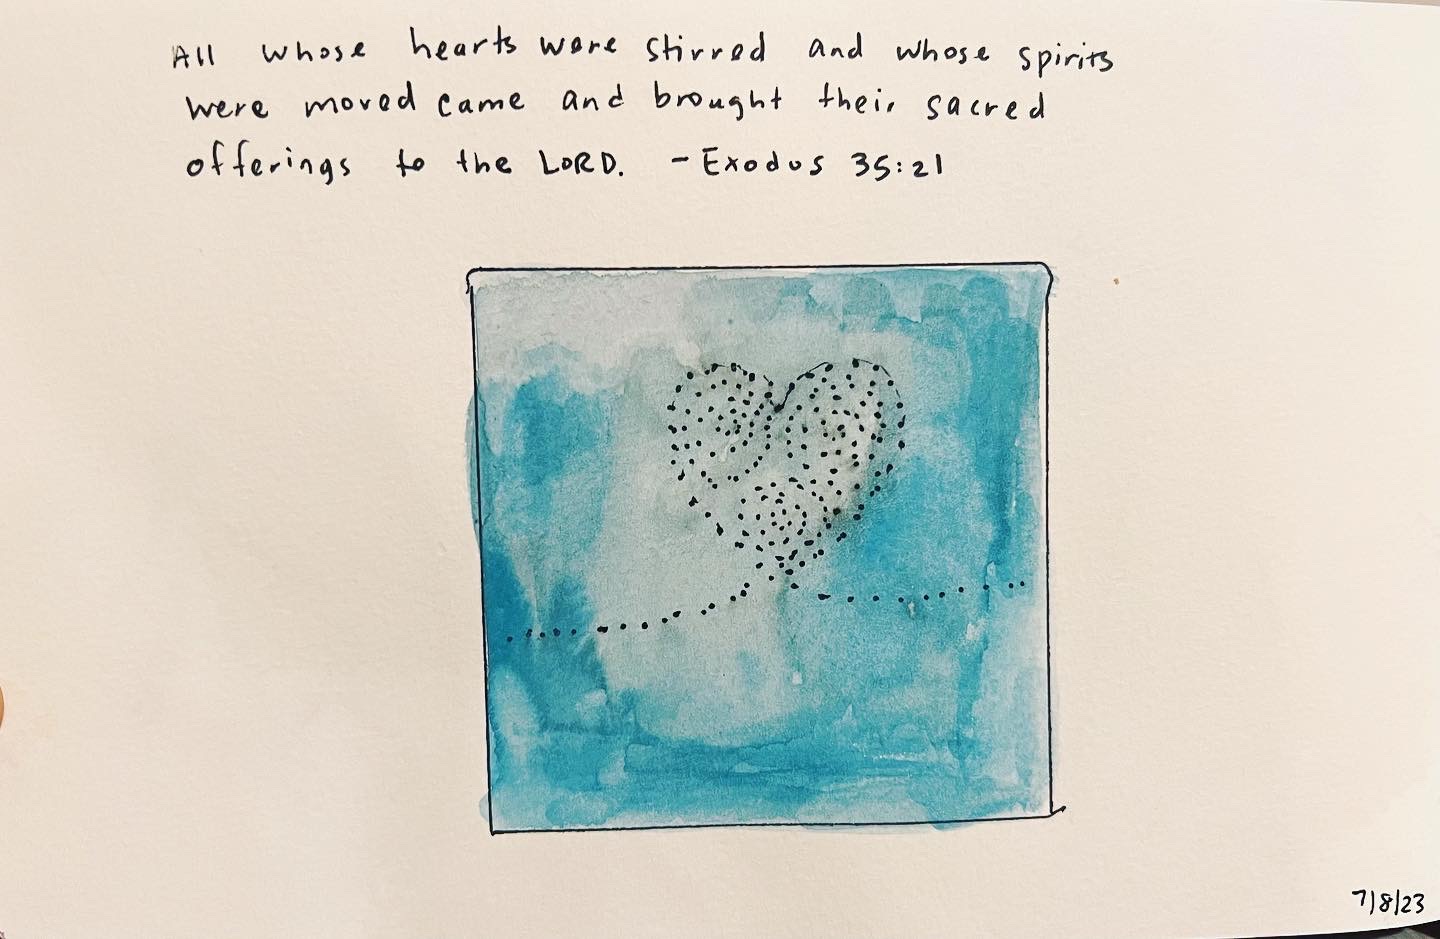 All whose hearts were stirred and whose spirits
were moved came and brought their sacred
offerings to the LORD. - Exodus 35:21
7/8/23